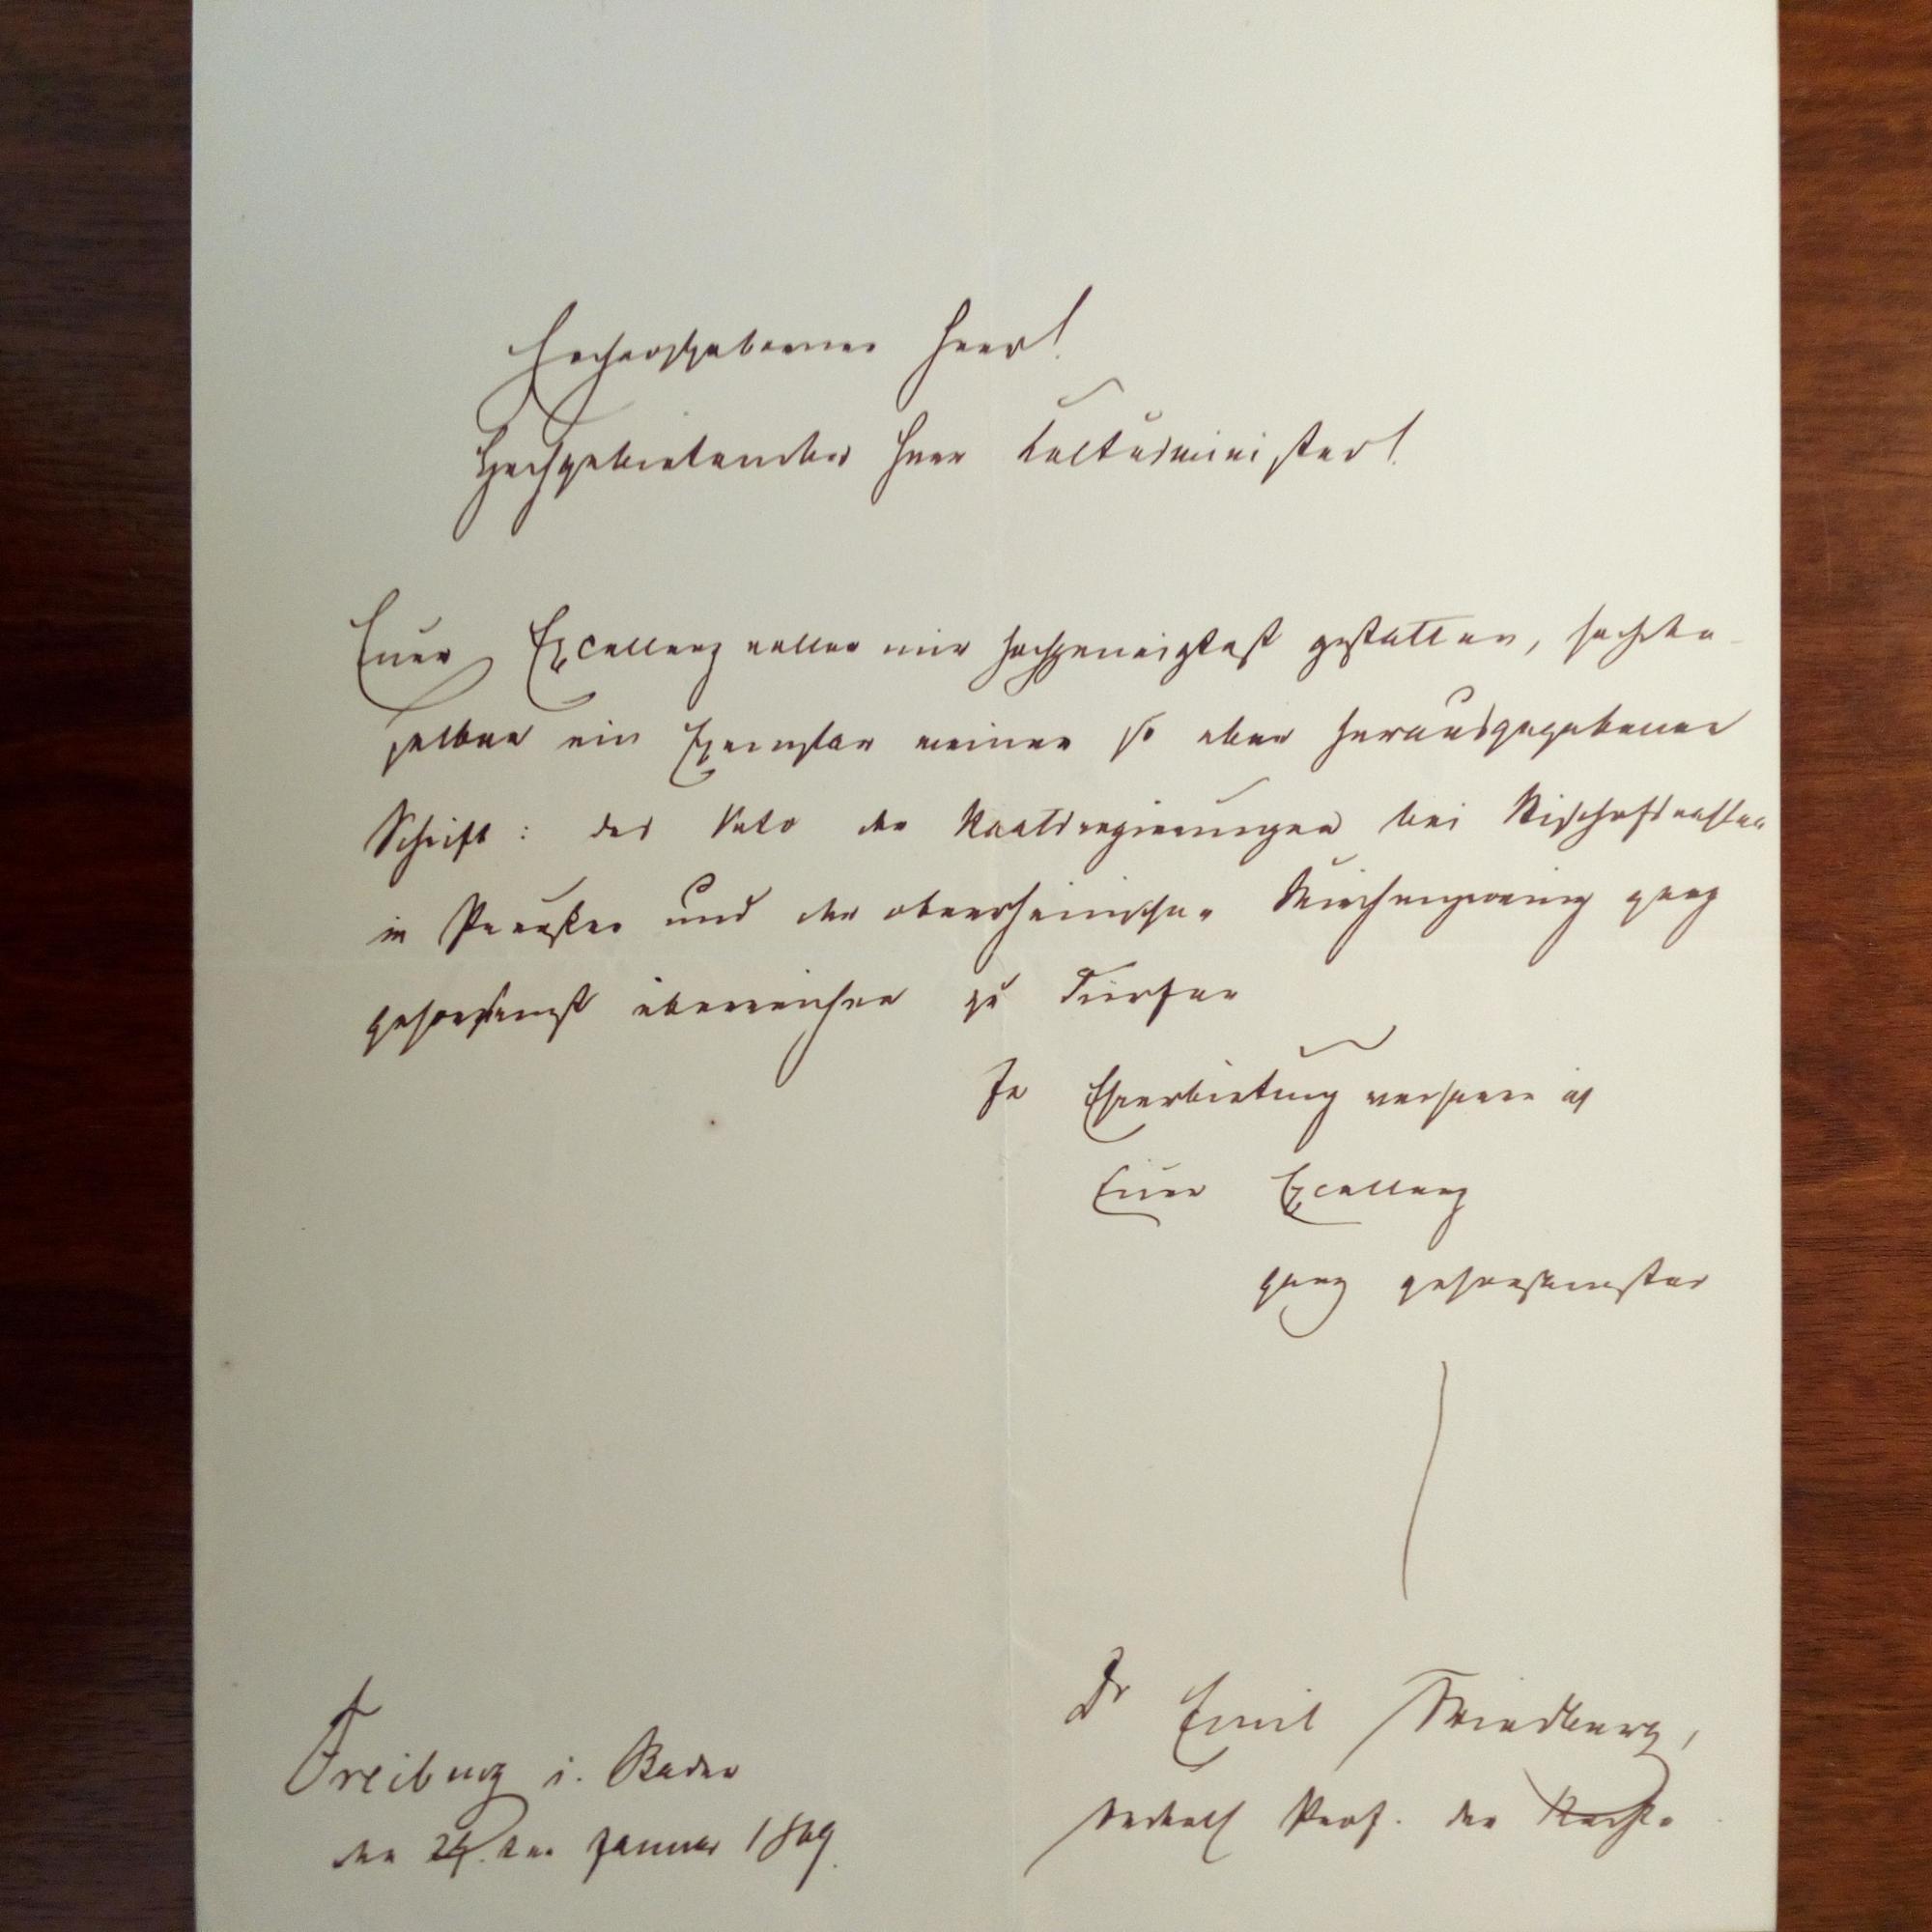 Hochwohlgeborener Herr!
Hochgebietender Herr Cultusminister!
Euer Excellenz wollen mir hochgeneigtest gestatten, hochde-
selben ein Exemplar meiner so eben herausgegebenen
Schrift: das Veto der Staatsregierungen bei Bischofswahlen
in Preußen und der oberrheinischen Kirchenprovinz ganz
gehorsamst überreichen zu dürfen
In Ehrerbietung verharre ich
Euer Excellenz
ganz gehorsamster
Dr Emil Friedberg,
Prof. der Rechte
Freiburg i. Baden
den 24. Januar 1869.